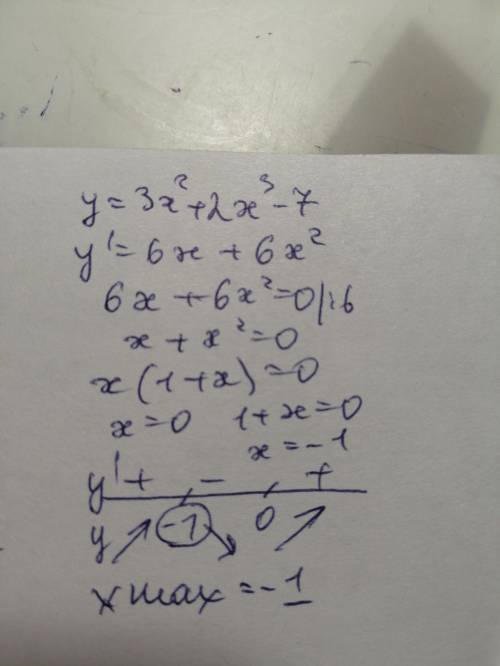 y = 3x² + 2x³ - 7
y' = 6x + 6x²
6x + 6x² = 0 |:6
x + x² = 0
x(1+x) = 0
x = 0 1+x = 0
x = -1
y' + - +
y -1 0
x max = -1